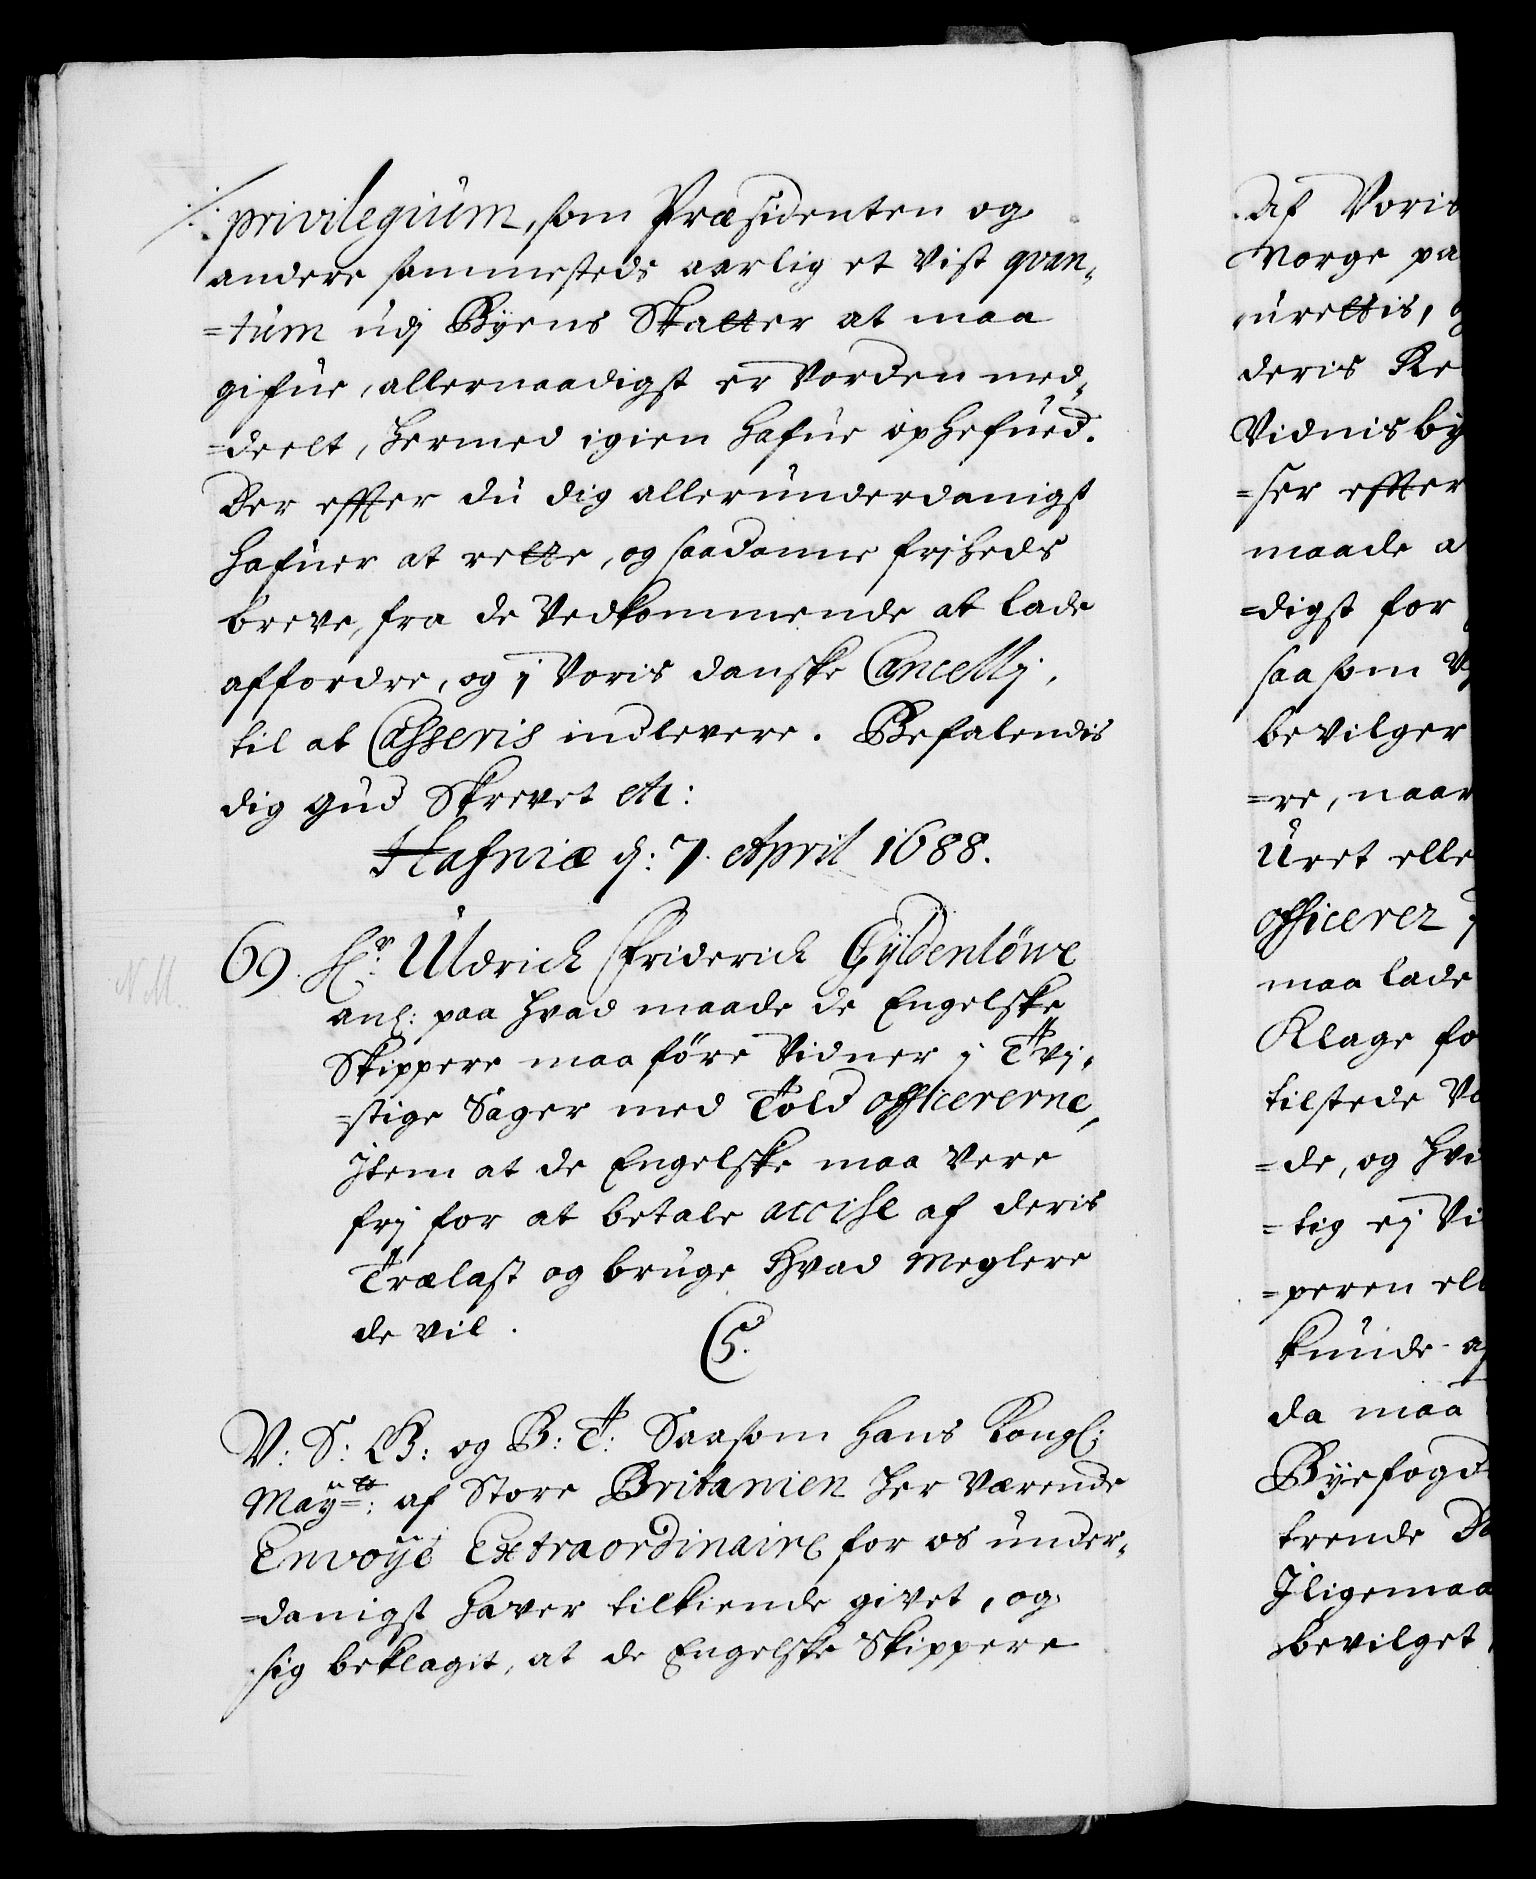 privilegium, som Præsidenten og
andere sammesteds aarlig et vist qvan-
=tum udj Byens Skatter at maa
gifue, allernaadigst er vorden med-
=deelt, hermed igien hafue ophefued.
Der effter du dig allerunderdanigst
hafuer at rette, og saadanne frjheds
breve, fra de Vedkommende at lade
affordre, og j Voris danske Cancellj,
til at Casseris indlevere. Befalendis
dig Gud Skrevet etc:
Hafniæ d: 7. April 1688.
69. Hr. Uldrich Friderich Gyldenlöwe
anl: paa hvad maade de Engelske
Skippere maa före Vidner j Tvj-
=stige Sager med Told officererne,
Jtem at de Engelske maa vere
frj for at betale accise af deris
Trælast og bruge hvad Meglere
de vil.
C5.
V: S: G: og B: T: Saasom Hans Kongl:
Maytt: af Store Britanien her værende
Envoyé Extraordinaire for os under-
=danigst haver tilkiende givet, og
sig beklagit, at de Engelske Skippere
NM.
Af Voris
Norge pa
urettis,
deris Re
Vidnisby
=ser effter
maade a
=digst for
saa som V
bevilger
=re, naar
Uret elle
officerer
maa lade
Klage fo
tilstede Va
=de, og hvi
=tig ej Vi
=peren ell
kunde af
da maa
Byefogd
trende D
Jligemaa
bevilget